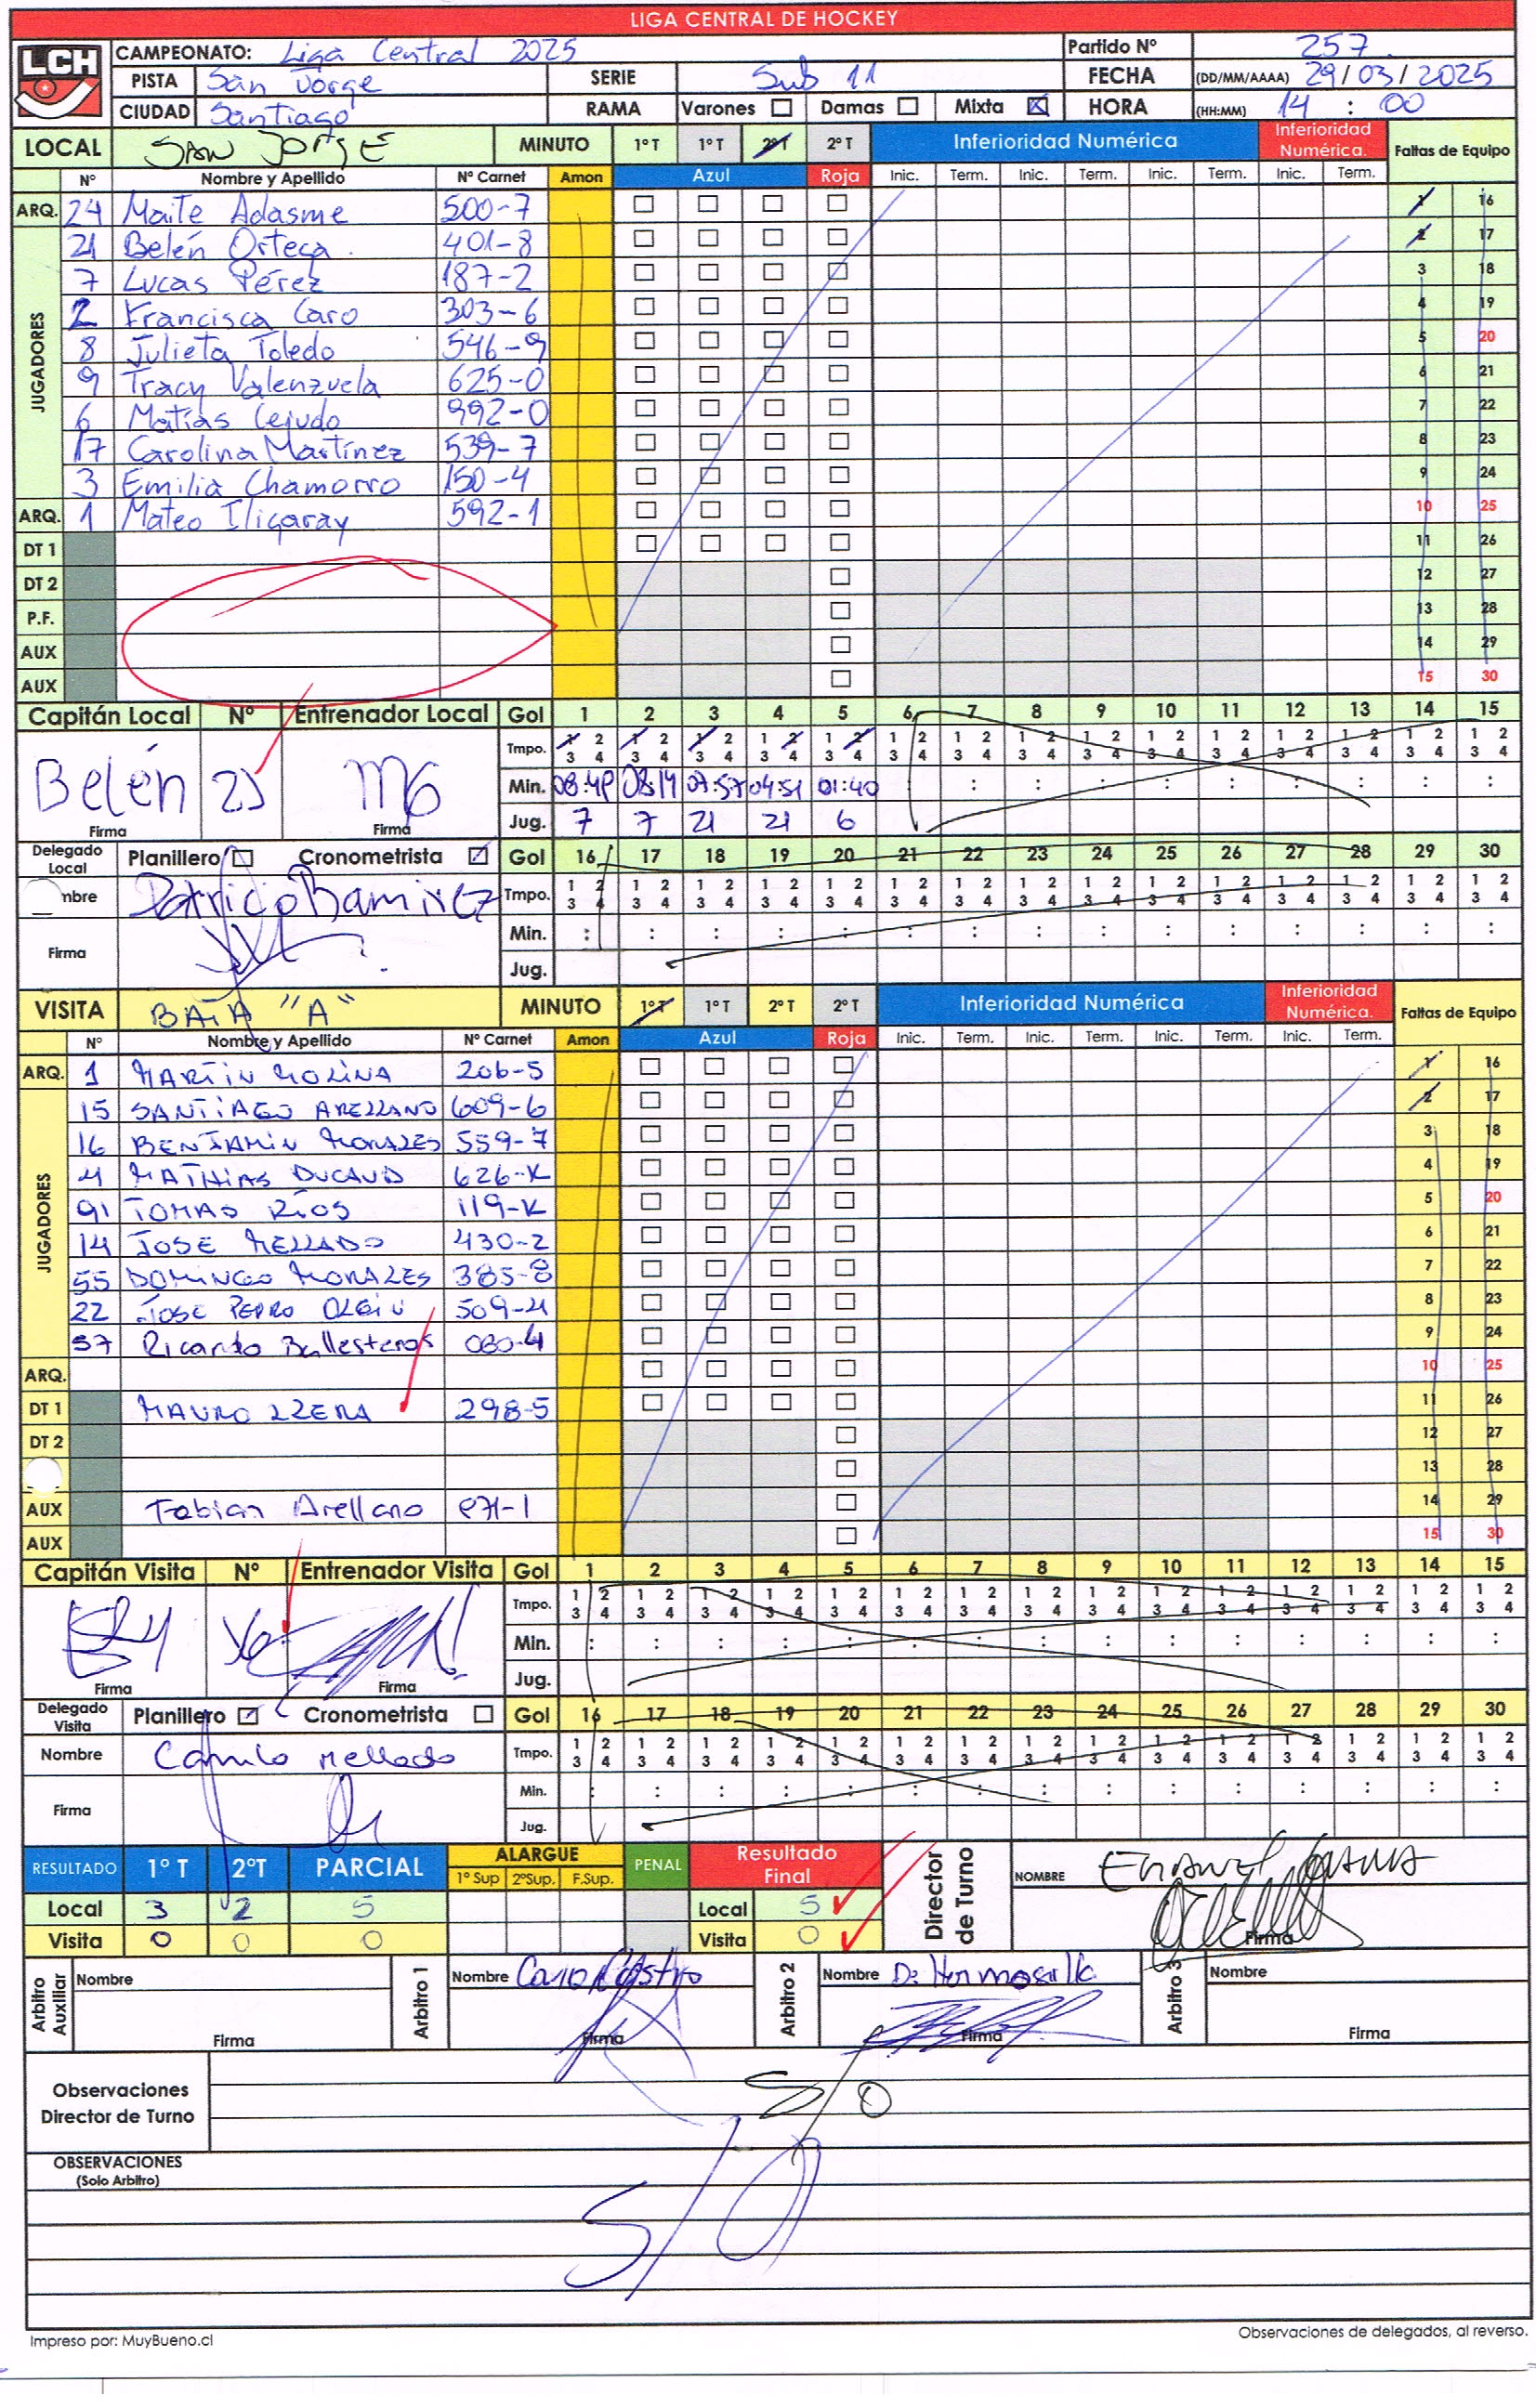 LIGA CENTRAL DE HOCKEY
LCH
CAMPEONATO: Liga Central 2025 Partido Nº 257
PISTA San Jorge SERIE Sub 11 FECHA (DD/MM/AAAA) 29/03/2025
CIUDAD Santiago RAMA Varones ☐ Damas ☐ Mixta ☒ HORA (HH:MM) 14 : 00
LOCAL SAN JORGE MINUTO 1º T 1º T 2º T 2º T Inferioridad Numérica Inferioridad Numérica. Faltas de Equipo
Nº Nombre y Apellido Nº Carnet Amon Azul Roja Inic. Term. Inic. Term. Inic. Term. Inic. Term.
ARQ. 24 Maite Adasme 500-7 1 16
JUGADORES
21 Belén Ortega 401-8 2 17
7 Lucas Pérez 187-2 3 18
2 Francisca Caro 303-6 4 19
8 Julieta Toledo 546-9 5 20
9 Tracy Valenzuela 625-0 6 21
6 Matías Cejudo 992-0 7 22
17 Carolina Martínez 539-7 8 23
3 Emilia Chamorro 150-4 9 24
ARQ. 1 Mateo Iligaray 592-1 10 25
DT 1 11 26
DT 2 12 27
P.F. 13 28
AUX 14 29
AUX 15 30
Capitán Local Nº Entrenador Local Gol 1 2 3 4 5 6 7 8 9 10 11 12 13 14 15
Tmpo. 1 2 3 4 1 2 3 4 1 2 3 4 1 2 3 4 1 2 3 4 1 2 3 4 1 2 3 4 1 2 3 4 1 2 3 4 1 2 3 4 1 2 3 4 1 2 3 4 1 2 3 4 1 2 3 4 1 2 3 4
Belén 21 Min. 08:14 07:57 04:51 01:40
Firma Firma Jug. 7 7 21 21 6
Delegado Local Planillero ☐ Cronometrista ☑ Gol 16 17 18 19 20 21 22 23 24 25 26 27 28 29 30
mbre Patricio Ramirez Tmpo. 1 2 3 4 1 2 3 4 1 2 3 4 1 2 3 4 1 2 3 4 1 2 3 4 1 2 3 4 1 2 3 4 1 2 3 4 1 2 3 4 1 2 3 4 1 2 3 4 1 2 3 4 1 2 3 4 1 2 3 4
Firma Min. : : : : : : : : : : : : : : :
Jug.
VISITA BAIA "A" MINUTO 1º T 1º T 2º T 2º T Inferioridad Numérica Inferioridad Numérica. Faltas de Equipo
Nº Nombre y Apellido Nº Carnet Amon Azul Roja Inic. Term. Inic. Term. Inic. Term. Inic. Term.
ARQ. 1 MARTIN MOLINA 206-5 1 16
JUGADORES
15 SANTIAGO ARELLANO 609-6 2 17
16 BENJAMIN MORALES 559-7 3 18
4 MATHIAS DUCAUD 626-K 4 19
91 TOMAS RÍOS 119-K 5 20
14 JOSE MELLADO 430-2 6 21
55 DOMINGO MORALES 385-8 7 22
22 JOSE PEDRO OLGIN 509-4 8 23
57 Ricardo Ballesteros 080-4 9 24
ARQ. 10 25
DT 1 MAURO LLERA 298-5 11 26
DT 2 12 27
13 28
AUX Fabian Arellano 871-1 14 29
AUX 15 30
Capitán Visita Nº Entrenador Visita Gol 1 2 3 4 5 6 7 8 9 10 11 12 13 14 15
Tmpo. 1 2 3 4 1 2 3 4 1 2 3 4 1 2 3 4 1 2 3 4 1 2 3 4 1 2 3 4 1 2 3 4 1 2 3 4 1 2 3 4 1 2 3 4 1 2 3 4 1 2 3 4 1 2 3 4 1 2 3 4
Min. : : : : : : : : : : : : : : :
Firma Firma Jug.
Delegado Visita Planillero ☑ Cronometrista ☐ Gol 16 17 18 19 20 21 22 23 24 25 26 27 28 29 30
Nombre Camilo Mellado Tmpo. 1 2 3 4 1 2 3 4 1 2 3 4 1 2 3 4 1 2 3 4 1 2 3 4 1 2 3 4 1 2 3 4 1 2 3 4 1 2 3 4 1 2 3 4 1 2 3 4 1 2 3 4 1 2 3 4 1 2 3 4
Firma Min. : : : : : : : : : : : : : : :
Jug.
RESULTADO 1º T 2ºT PARCIAL ALARGUE 1º Sup 2ºSup. F.Sup. PENAL Resultado Final Director de Turno NOMBRE
Local 3 2 5 Local 5
Visita 0 0 0 Visita 0 Firma
Arbitro Auxiliar Nombre Arbitro 1 Nombre Caro Castro Arbitro 2 Nombre D. Hermosilla Arbitro 3 Nombre
Firma Firma Firma Firma
Observaciones Director de Turno S/O
OBSERVACIONES (Solo Arbitro) S/O
Impreso por: MuyBueno.cl Observaciones de delegados, al reverso.